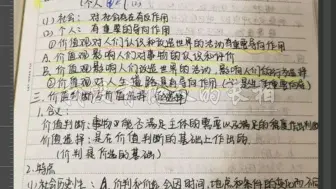 (个人
(1)社会: 对社会存在有反作用
(2)个人: 有重要的导向作用
①价值观对人们认识和改造世界的活动有重要导向作用
A.价值观影响人们对事物的认识和评价
B.价值观影响人们改造世界的活动,影响人们行为选择
②价值观对人生道路具有导向作用(是人生的重要向导)
三.价值判断与价值选择
1.含义:
价值判断:事物能否满足主体的需要以及满足的程度作出判断
价值选择:是在价值判断的基础上作出的
(价判是价选的基础)
2.特点
(1)社会历史性: A.价判和价选会因时间、地点和条件的变化而不同